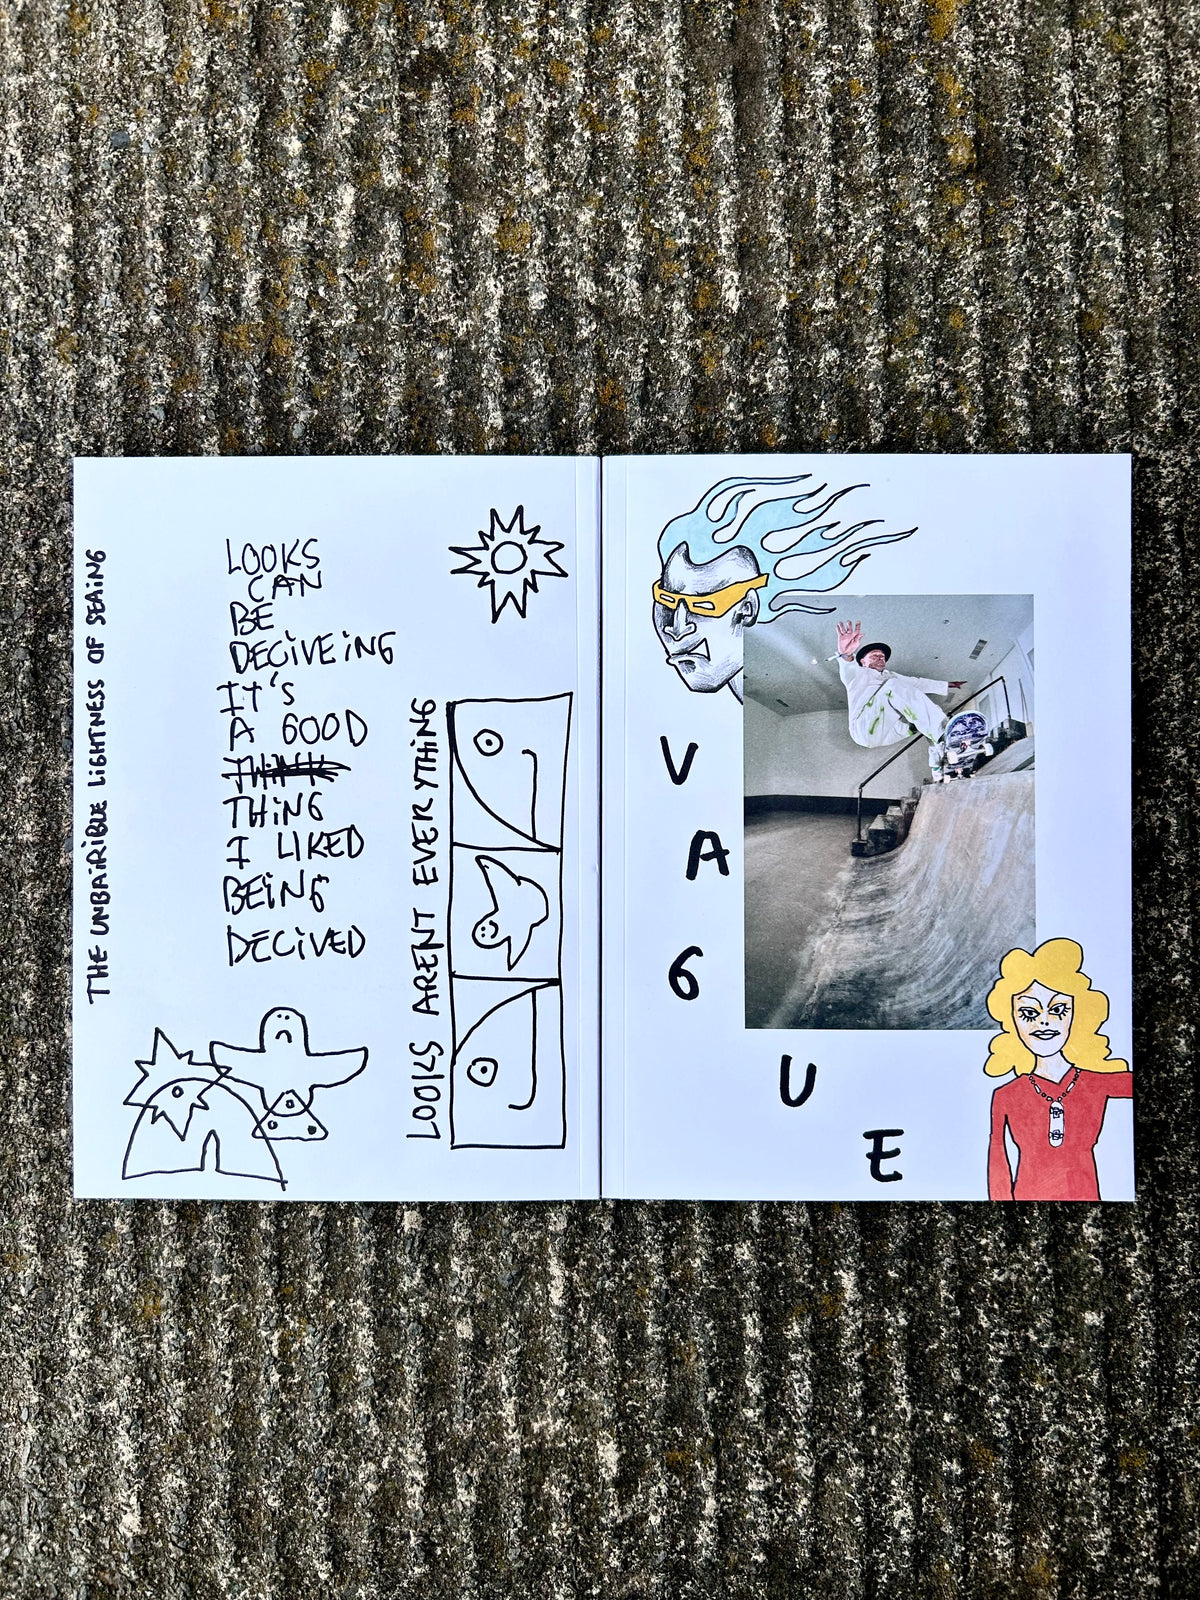 THE UNBAIRIBLE LIGHTNESS OF SEAING
LOOKS
CAN
BE
DECIVEING
IT'S
A GOOD
THINK
THING
I LIKED
BEING
DECIVED
LOOKS ARENT EVERYTHING
V
A
G
U
E